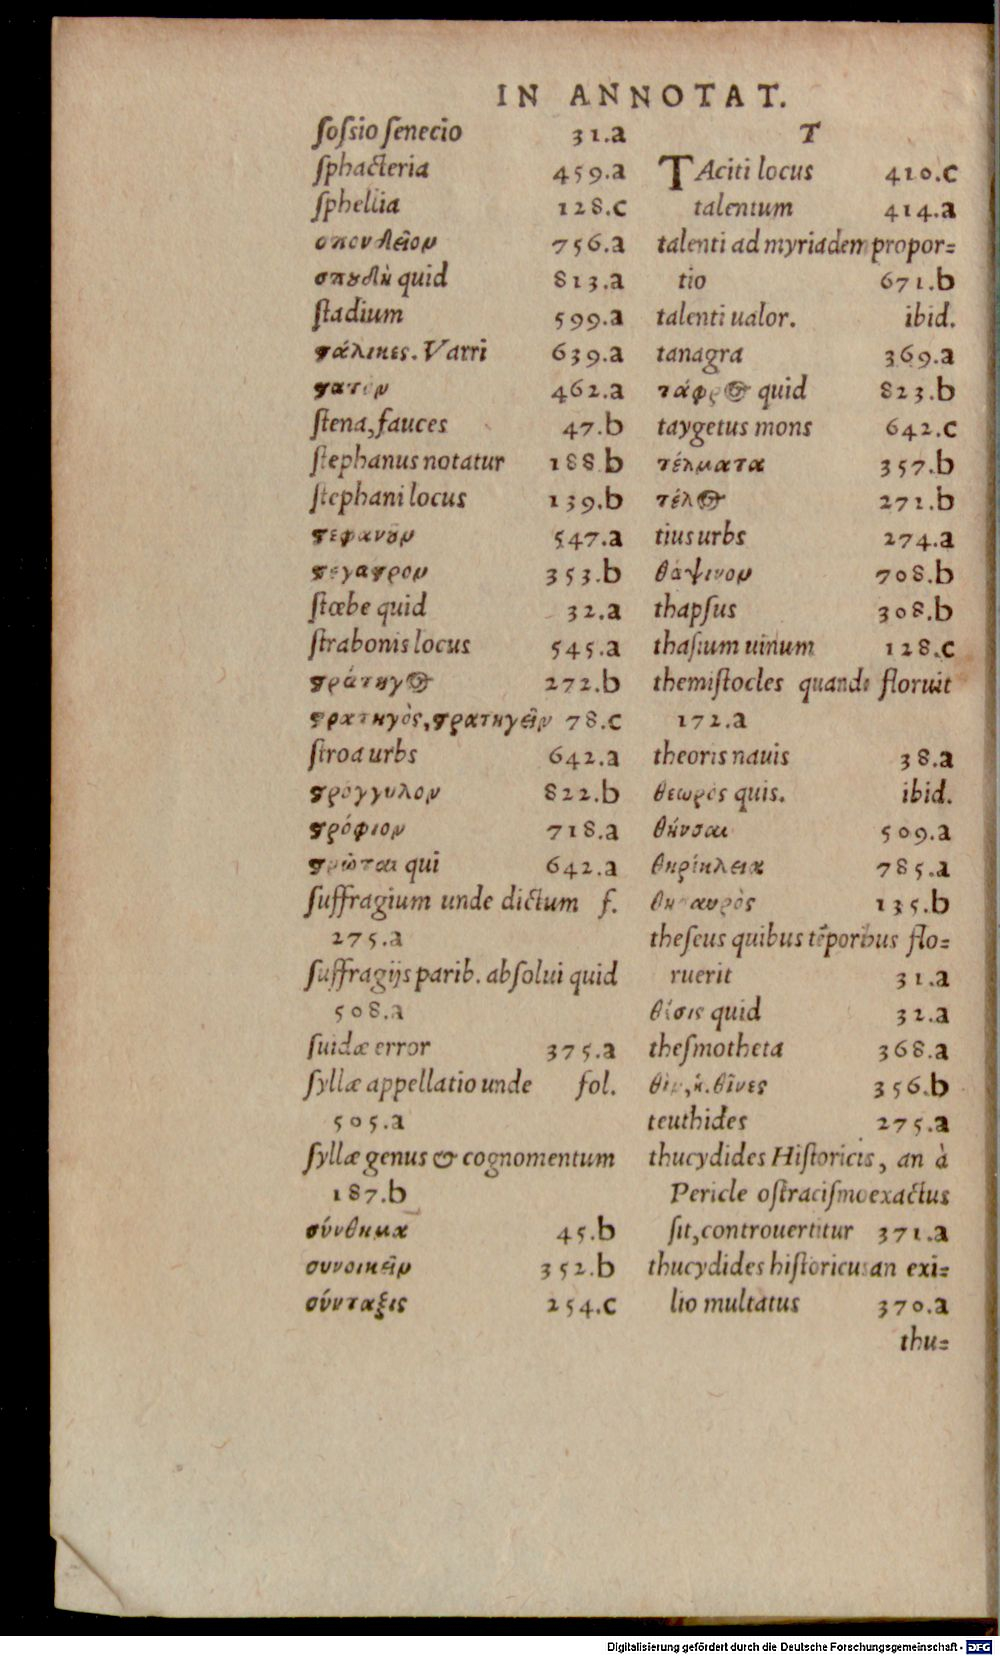 IN ANNOTAT.
soſsio ſenecio 31.a
ſphacteria 459.a
ſphellia 128.c
σπονδεῖον 756.a
σπουδὴ quid 813.a
ſtadium 599.a
ϛάλικες. Varri 639.a
ϛατὸν 462.a
ſtena, fauces 47.b
ſtephanus notatur 188 b
ſtephani locus 139.b
ϛεφανοῦν 547.a
ϛέγαϛρον 353.b
ſtœbe quid 32.a
ſtrabonis locus 545.a
ϛράτηγος 272.b
ϛρατηγὸς, ϛρατηγεῖν 78.c
ſtroa urbs 642.a
ϛρογγυλον 822.b
ϛρόφιον 718.a
ϛρῶται qui 642.a
ſuffragium unde dictum f.
275.a
ſuffragijs parib. abſolui quid
508.a
ſuidæ error 375.a
ſyllæ appellatio unde fol.
505.a
ſyllæ genus & cognomentum
187.b
σύνθημα 45.b
συνοικεῖν 352.b
σύνταξις 254.c
T
TAciti locus 410.c
talentum 414.a
talenti ad myriadem propor=
tio 671.b
talenti ualor. ibid.
tanagra 369.a
τάφρος quid 823.b
taygetus mons 642.c
τέλματα 357.b
τέλος 271.b
tius urbs 274.a
θάψινον 708.b
thapſus 308.b
thaſium uinum 128.c
themiſtocles quando floruit
172.a
theoris nauis 38.a
θεωρὸς quis. ibid.
θῆνσαι 509.a
θηρίκλεια 785.a
θησαυρὸς 135.b
theſeus quibus tẽporibus flo=
ruerit 31.a
θέσις quid 32.a
theſmotheta 368.a
θὶν, κ. θῖνες 356.b
teuthides 275.a
thucydides Hiſtoricis, an à
Pericle oſtraciſmo exactus
ſit, controuertitur 371.a
thucydides hiſtoricus an exi=
lio multatus 370.a
thu=
Digitalisierung gefördert durch die Deutsche Forschungsgemeinschaft - DFG